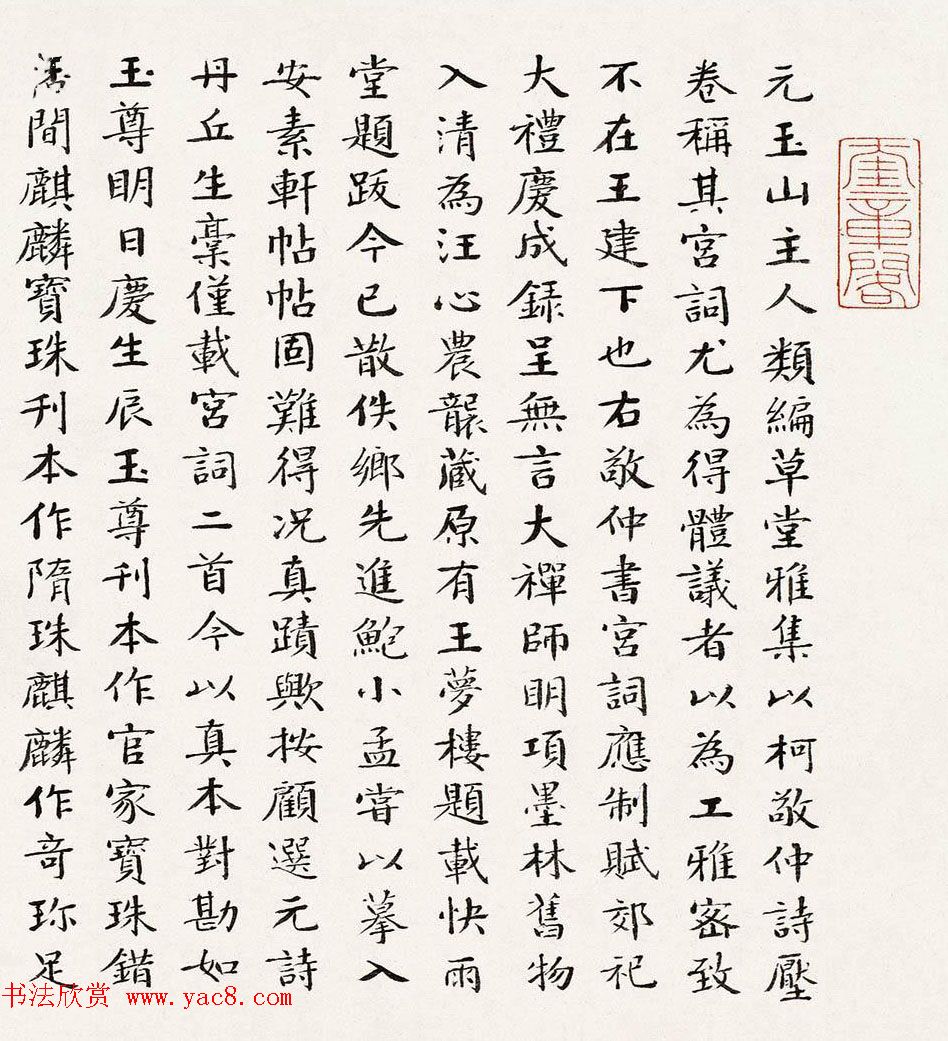 元玉山主人類編草堂雅集以柯敬仲詩壓
卷稱其宮詞尤為得體議者以為工雅密致
不在王建下也右敬仲書宮詞應制賦郊祀
大禮慶成錄呈無言大禪師明項墨林舊物
入清為汪心農龔藏原有王夢樓題載快雨
堂題跋今已散佚鄉先進鮑小孟嘗以摹入
安素軒帖帖固難得況真蹟歟按顧選元詩
丹丘生稾僅載宮詞二首今以真本對勘如
玉尊明日慶生辰玉尊刊本作官家寶珠錯
落間麒麟寶珠刊本作隋珠麒麟作奇珍足
書法欣赏 www.yac8.com